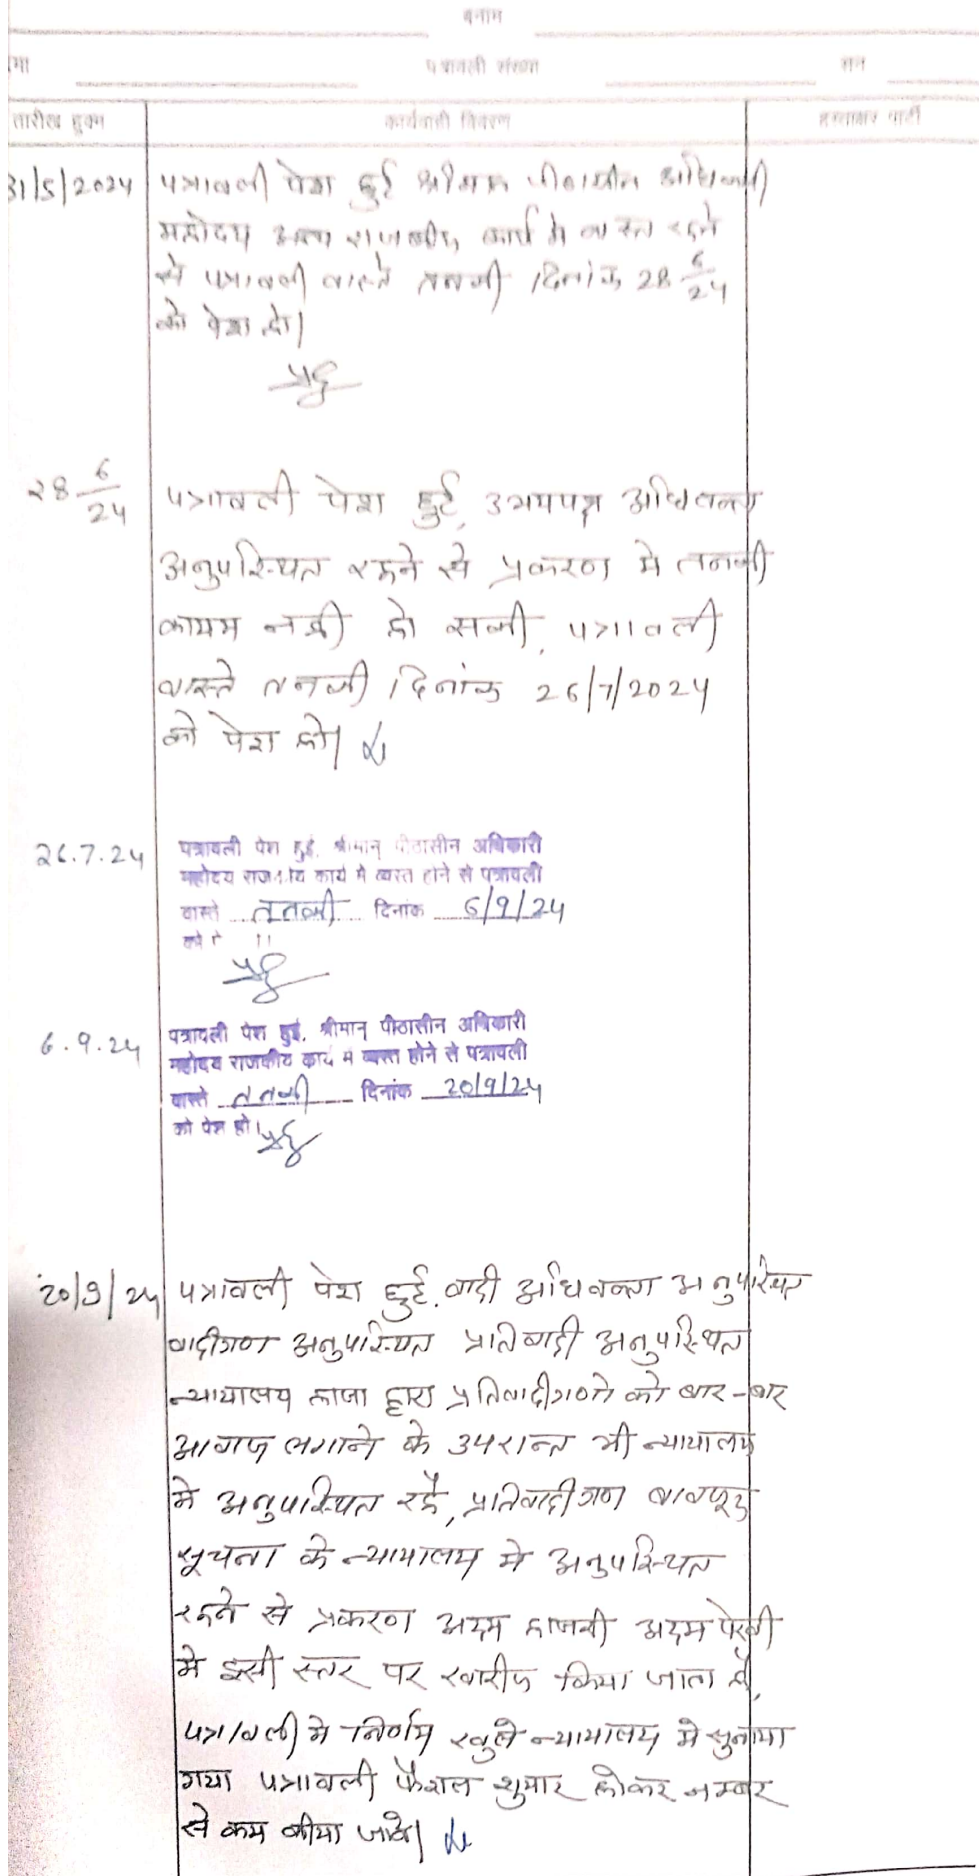 बनाम
पत्रावली संख्या सन
तारीख हुक्म कार्यवाही विवरण हस्ताक्षर पार्टी
31/5/2024 पत्रावली पेश हुई श्रीमान पीठासीन अधिकारी
महोदय अन्य राजकीय कार्य मे व्यस्त रहने
से पत्रावली वास्ते तनकी दिनांक 28 6/24
को पेश हो।
28 6/24 पत्रावली पेश हुई, उभयपक्ष अधिवक्ता
अनुपस्थित रहने से प्रकरण मे तनकी
कायम नही हो सकी, पत्रावली
वास्ते तनकी दिनांक 26/7/2024
को पेश हो।
26.7.24 पत्रावली पेश हुई, श्रीमान् पीठासीन अधिकारी
महोदय राजकीय कार्य मे व्यस्त होने से पत्रावली
वास्ते तनकी दिनांक 6/9/24
को
6.9.24 पत्रावली पेश हुई, श्रीमान् पीठासीन अधिकारी
महोदय राजकीय कार्य मे व्यस्त होने से पत्रावली
वास्ते तनकी दिनांक 20/9/24
को पेश हो।
20/9/24 पत्रावली पेश हुई, वादी अधिवक्ता अनुपस्थित
वादीगण अनुपस्थित प्रतिवादी अनुपस्थित
न्यायालय द्वारा को बार-बार
आवाज लगाने के उपरान्त भी न्यायालय
मे अनुपस्थित रहे, प्रतिवादीगण बावजूद
सूचना के न्यायालय मे अनुपस्थित
रहने से प्रकरण अदम हाजरी अदम पेरवी
मे इसी स्तर पर खारीज किया जाता है,
पत्रावली मे निर्णय खुले न्यायालय मे सुनाया
गया पत्रावली फैशल शुमार होकर नम्बर
से कम कीया जावे।